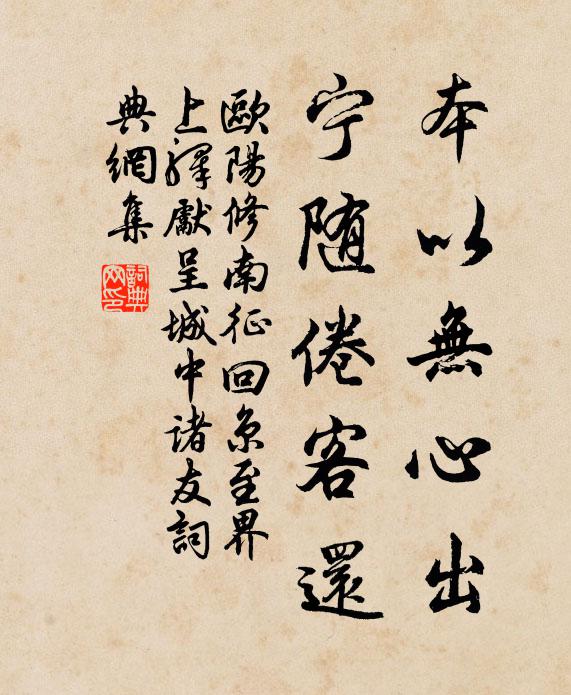 本以無心出
宁随倦客還
歐陽修南征回京至界
上驛獻呈城中诸友詞
典網集
詞典網印